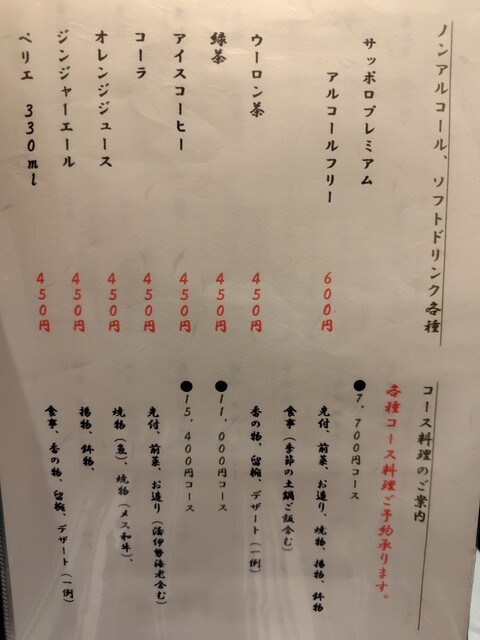 ノンアルコール、ソフトドリンク各種
サッポロプレミアム
アルコールフリー 600円
ウーロン茶 450円
緑茶 450円
アイスコーヒー 450円
コーラ 450円
オレンジジュース 450円
ジンジャーエール 450円
ペリエ 330ml 450円
コース料理のご案内
各種コース料理ご予約承ります。
●7,700円コース
先付、前菜、お造り、焼物、揚物、鉢物
食事(季節の土鍋ご飯含む)
香の物、留椀、デザート(一例)
●11,000円コース
●15,400円コース
先付、前菜、お造り(活伊勢海老含む)
焼物(魚)、焼物(メス和牛)、
揚物、鉢物、
食事、香の物、留椀、デザート(一例)